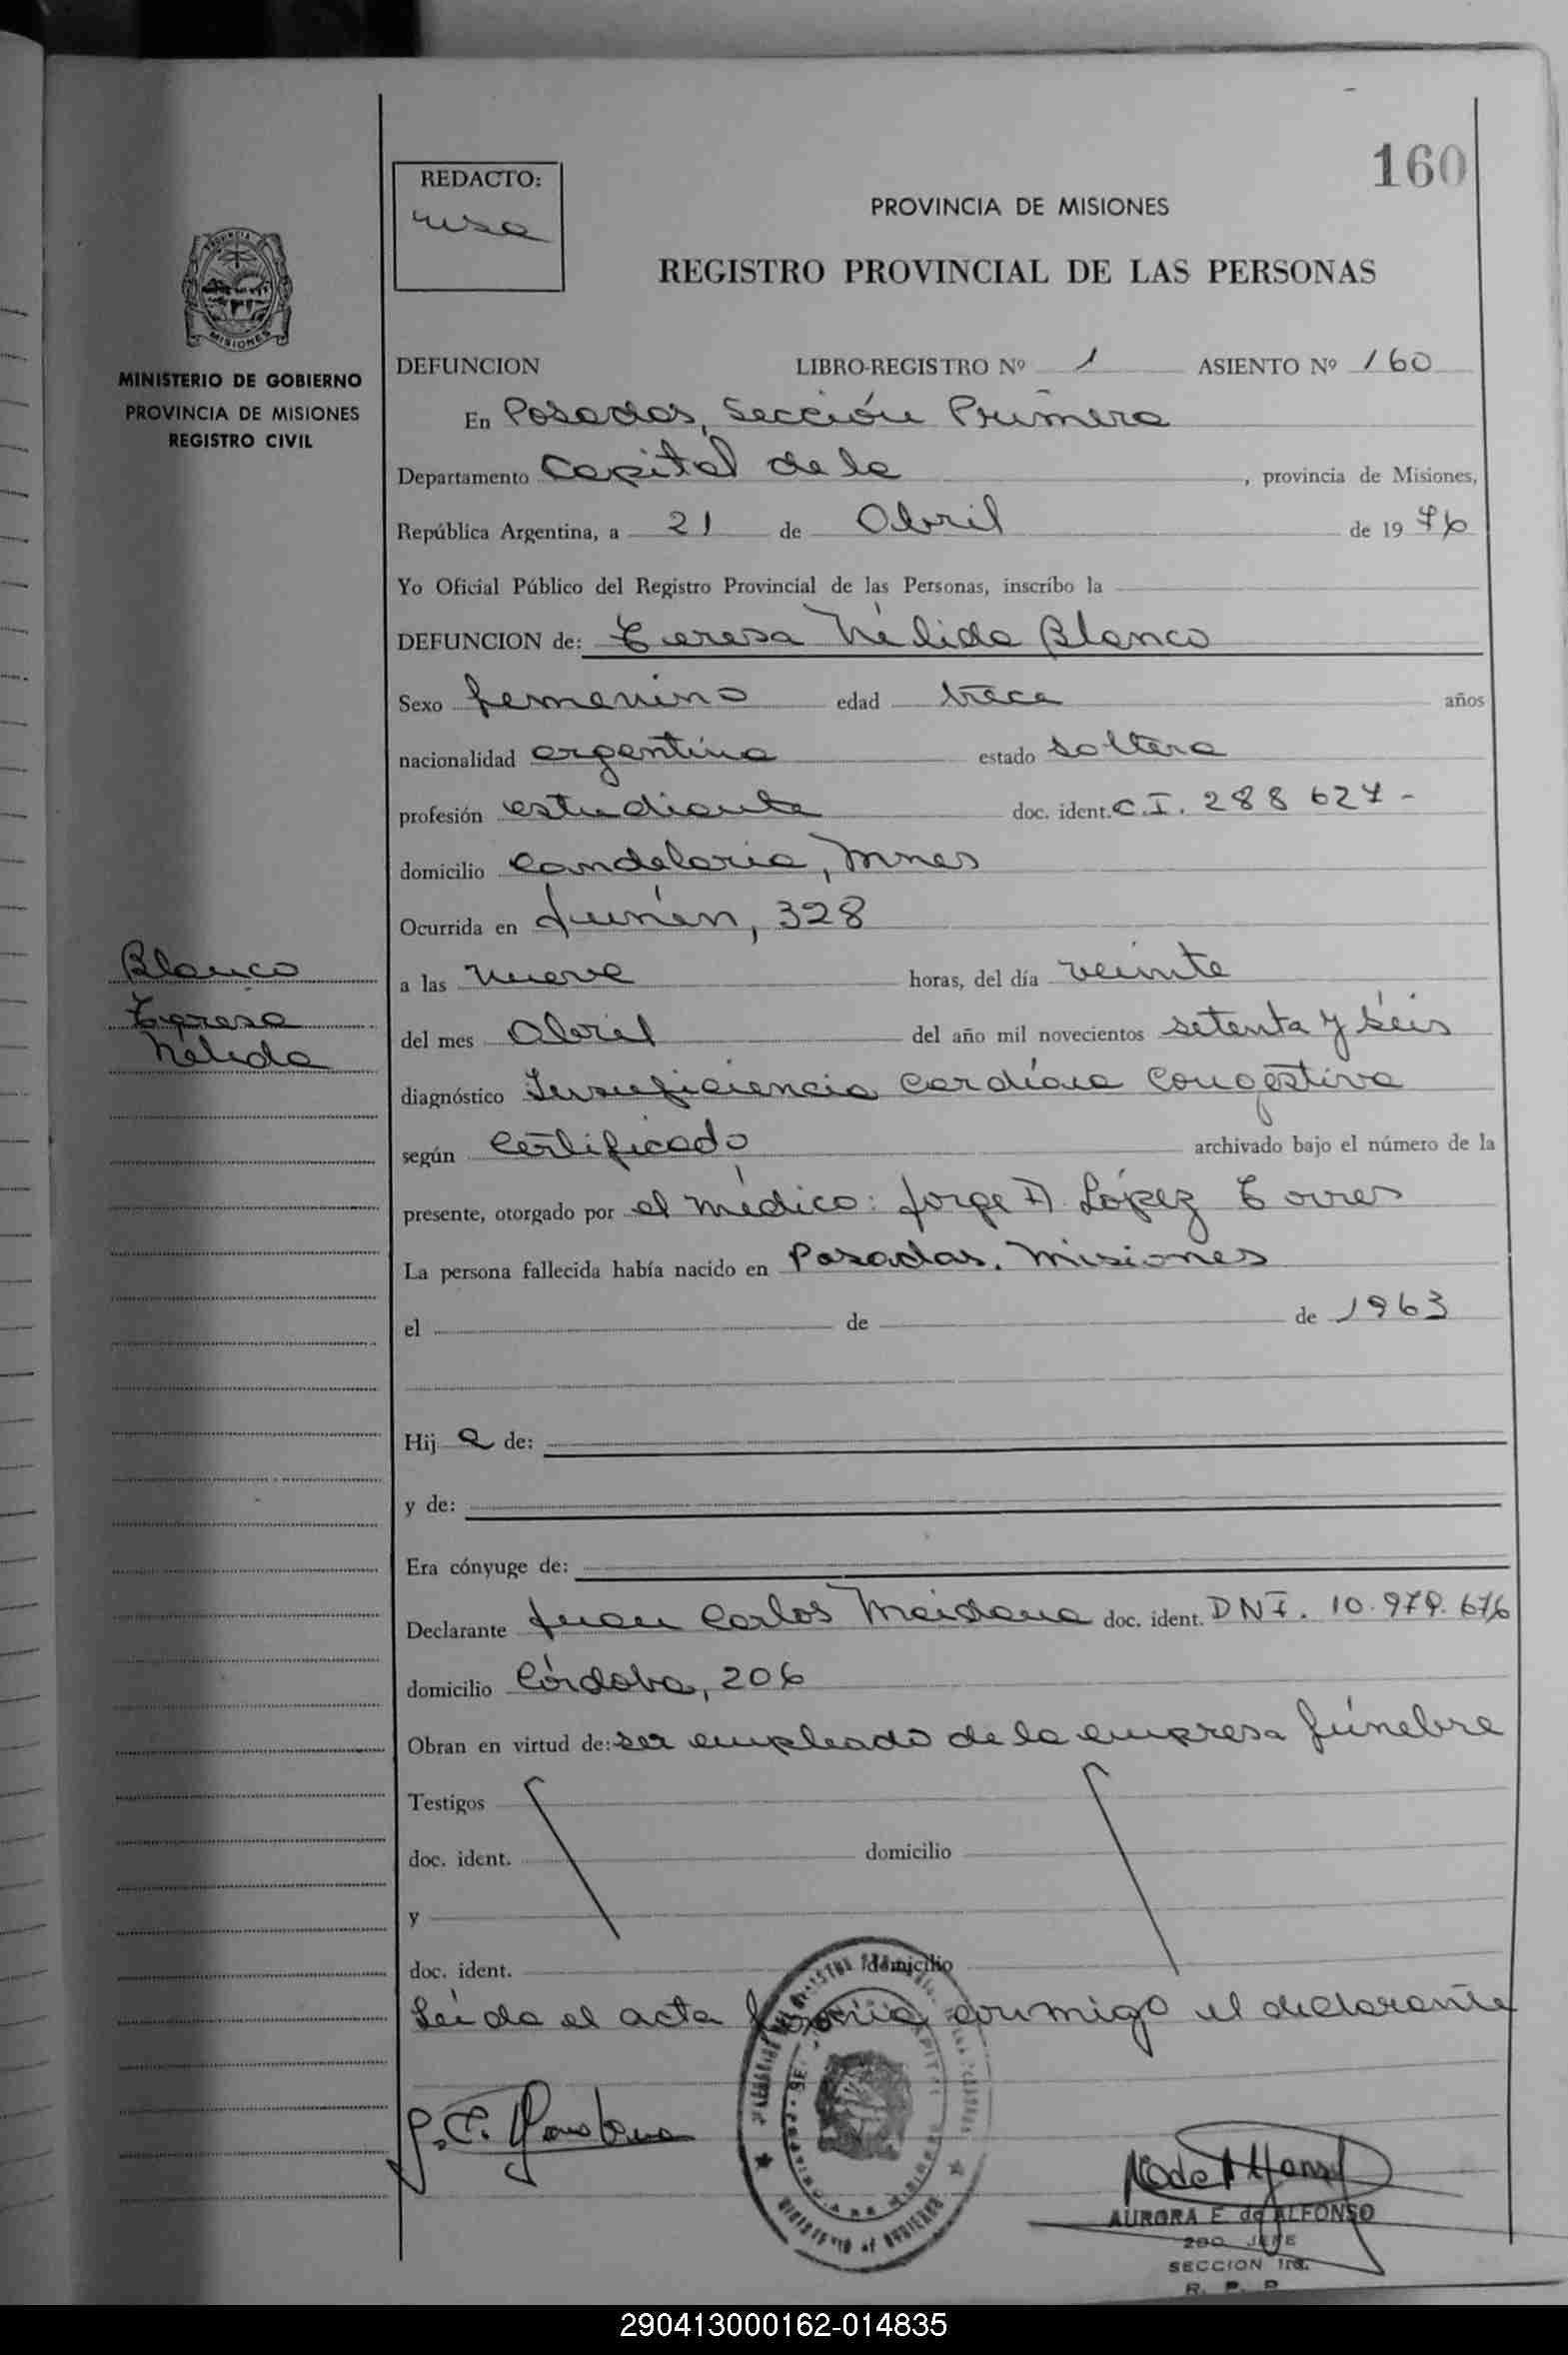 160
REDACTO:
PROVINCIA DE MISIONES
REGISTRO PROVINCIAL DE LAS PERSONAS
PROVINCIA DE
MISIONES
MINISTERIO DE GOBIERNO
PROVINCIA DE MISIONES
REGISTRO CIVIL
DEFUNCION LIBRO-REGISTRO Nº 1 ASIENTO Nº 160
En Posadas, Sección Primera
Departamento Capital de la , provincia de Misiones,
República Argentina, a 21 de Abril de 1976
Yo Oficial Público del Registro Provincial de las Personas, inscribo la
DEFUNCION de: Teresa Nélida Blanco
Sexo femenino edad trece años
nacionalidad argentina estado soltera
profesión estudiante doc. ident. C.I. 288 627 -
domicilio Candelaria, Mnes
Ocurrida en Junín, 328
Blanco
Teresa
Nélida
a las nueve horas, del día veinte
del mes Abril del año mil novecientos setenta y séis
diagnóstico Insuficiencia Cardíaca Congestiva
según Certificado archivado bajo el número de la
presente, otorgado por el médico: Jorge A. López Torres
La persona fallecida había nacido en Posadas. Misiones
el de de 1963
Hij a de:
y de:
Era cónyuge de:
Declarante Juan Carlos Maidana doc. ident. DNI. 10.979.676
domicilio Córdoba, 206
Obran en virtud de: ser empleado de la empresa fúnebre
Testigos
doc. ident. domicilio
y
doc. ident. domicilio
Leída el acta firma conmigo el declarante
AURORA E. de ALFONSO
2DO. JEFE
SECCION 1ra.
R. P. P.
290413000162-014835